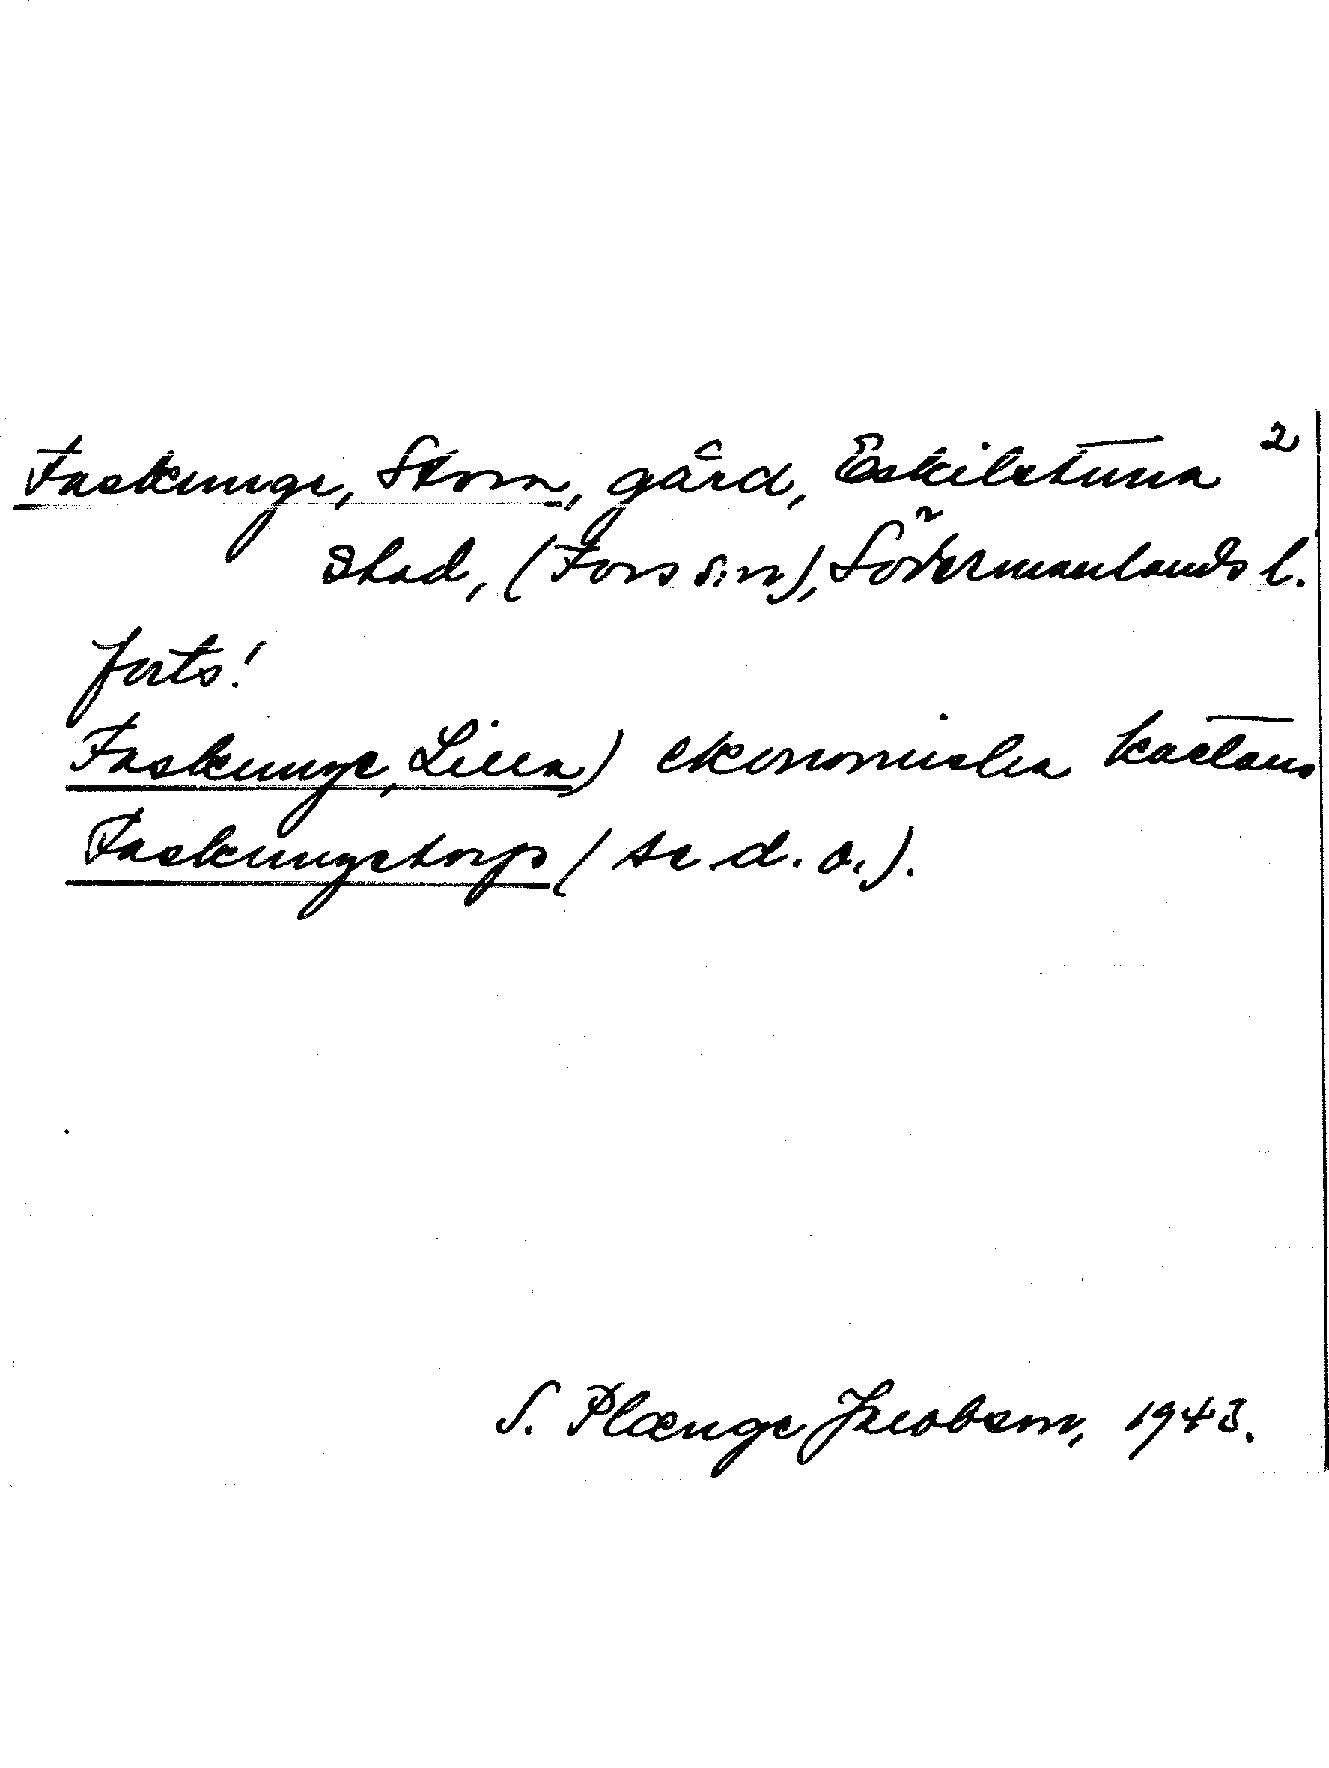 Faskunge, Stora, gård, Eskilstuna 2
stad, (Fors sn), Södermanlands l.
forts!
Faskunge, Lilla) ekonomiska kartans
Faskungetorp (se d. o.).
S. Plænge Jacobson, 1943.